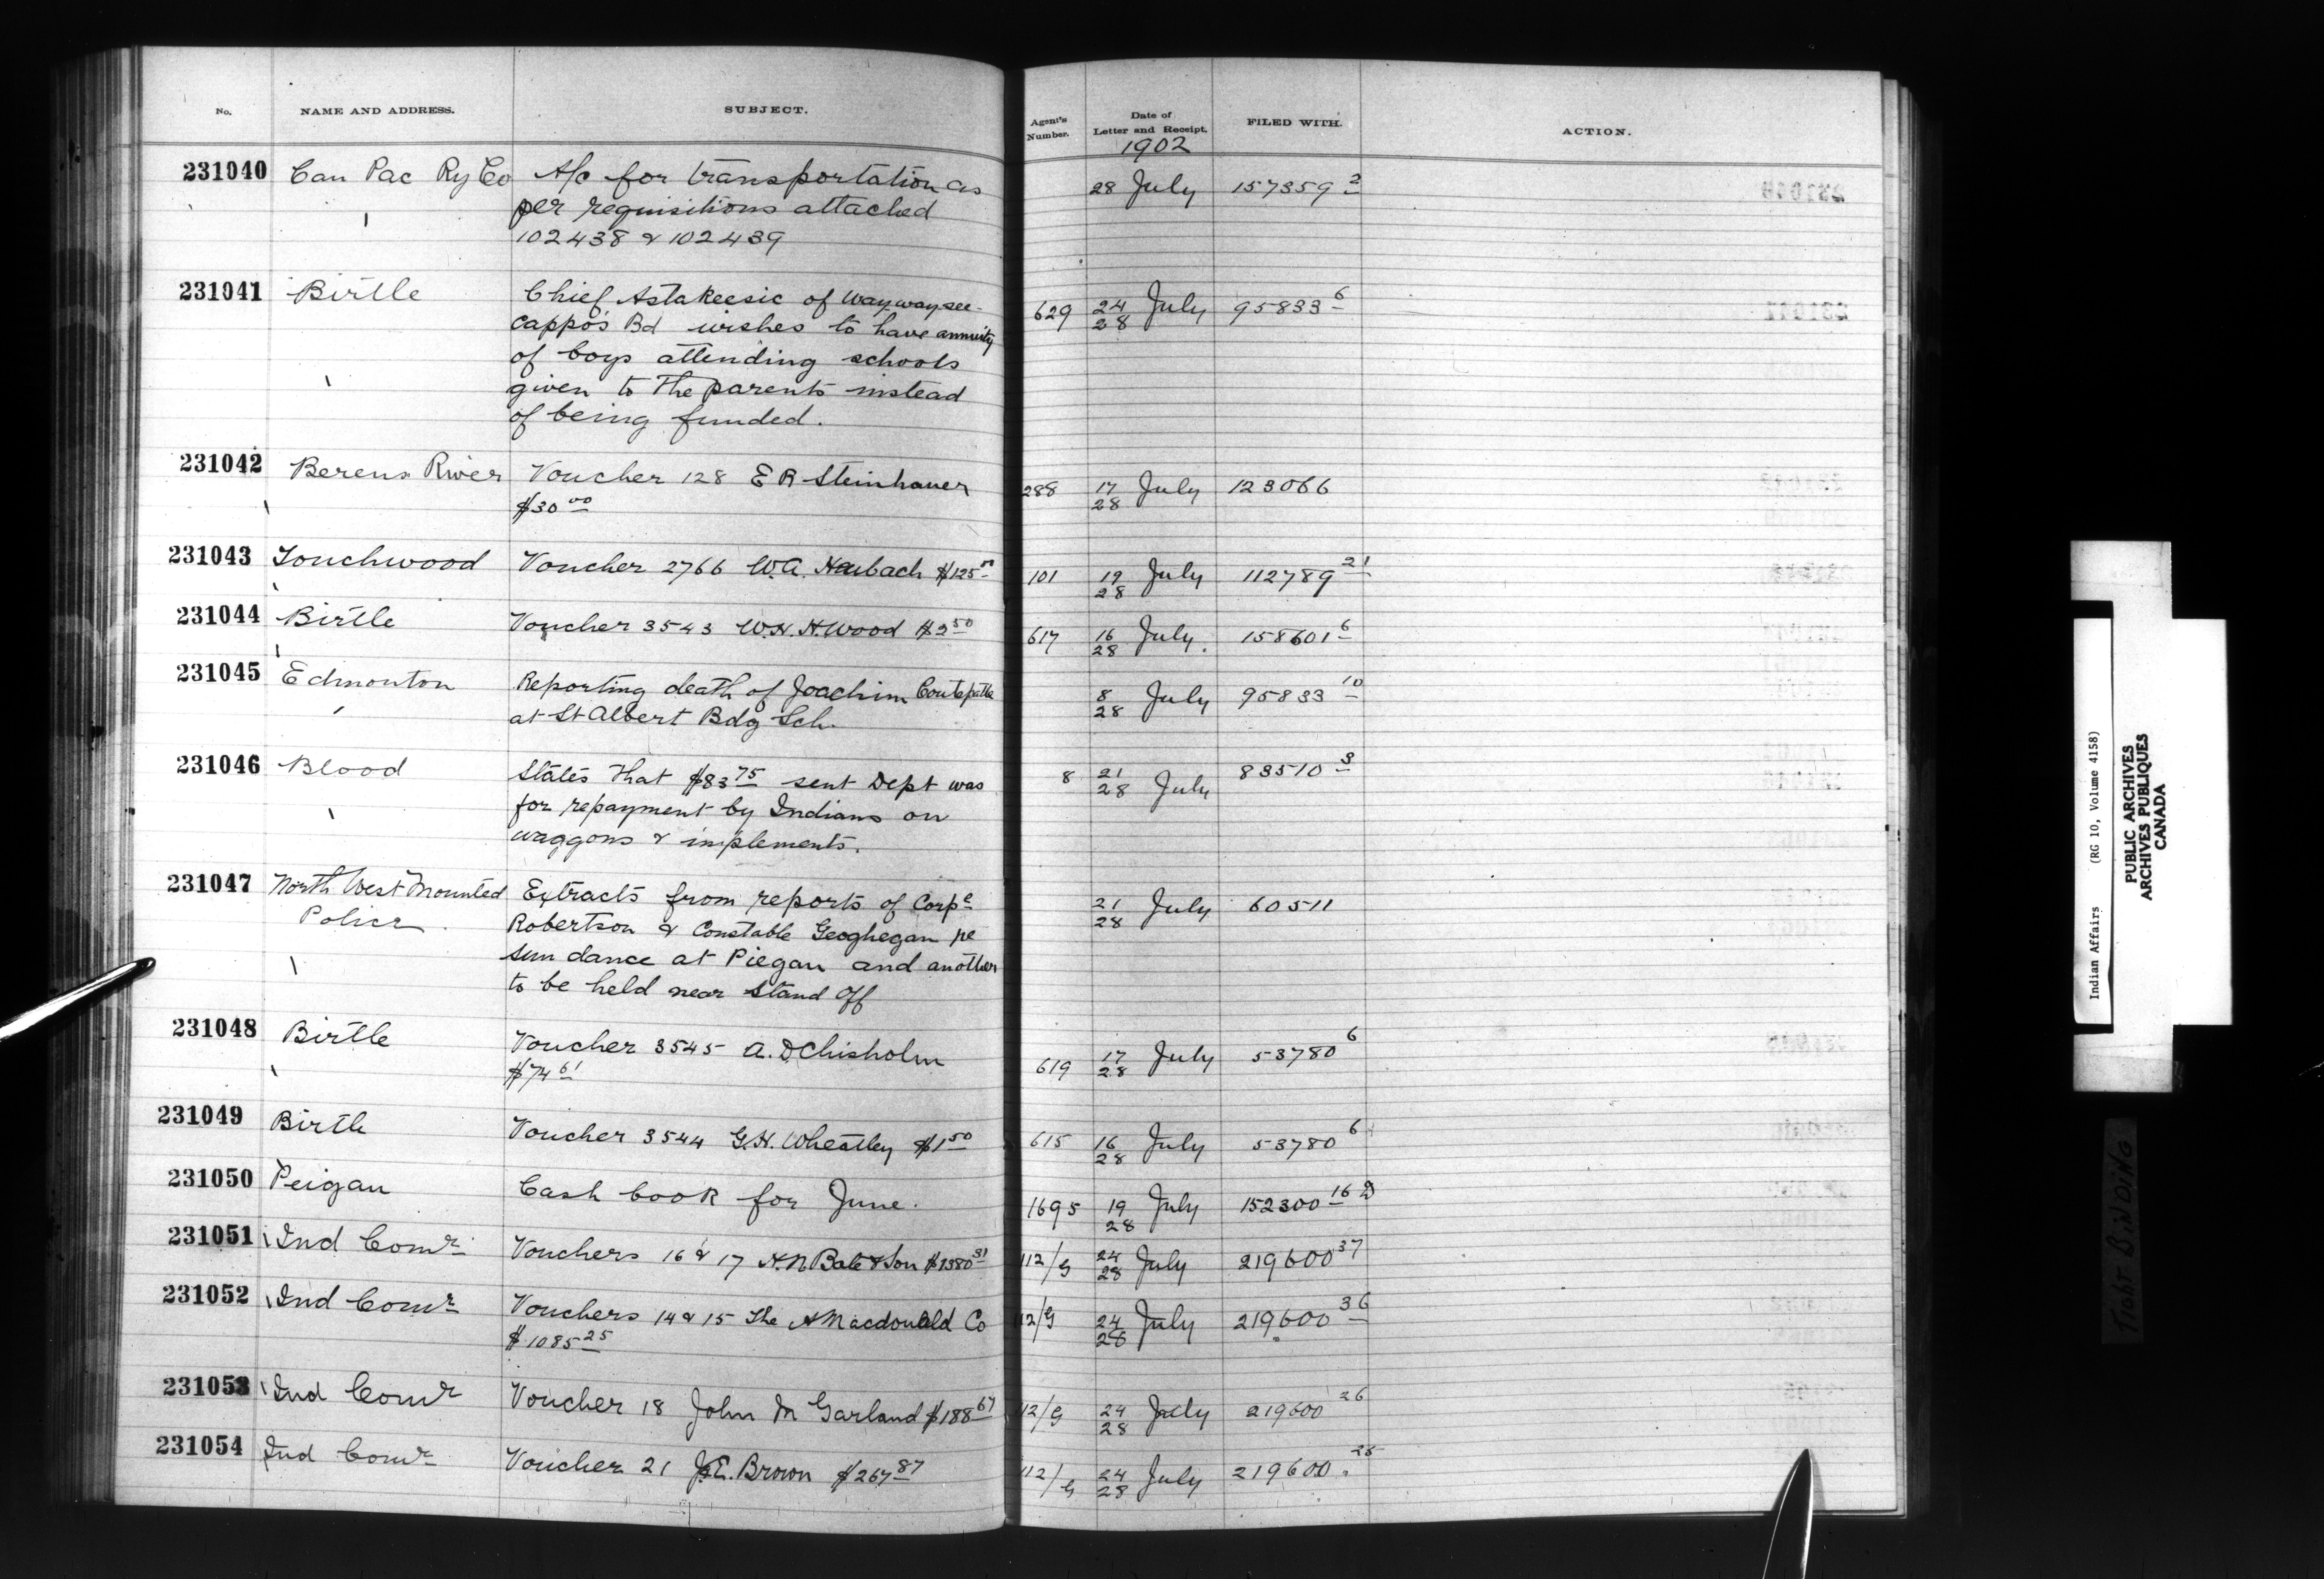 No. NAME AND ADDRESS. SUBJECT. Agent's Number. Date of Letter and Receipt. FILED WITH. ACTION.
1902
231040 Can Pac Ry Co A/c for transportation as 28 July 157359 2
per requisitions attached
102438 & 102439
231041 Birtle Chief Astakeesic of Waywaysee- 629 24/28 July 95833 6
cappo's Bd wishes to have annuity
of boys attending schools
given to the parents instead
of being funded.
231042 Berens River Voucher 128 E R Steinhauer 288 17/28 July 123066
$30 00
231043 Touchwood Voucher 2766 W.A. Heubach $125 101 19/28 July 112789 21
231044 Birtle Voucher 3543 W.H.H. Wood $2 50 617 16/28 July. 158601 6
231045 Edmonton Reporting death of Joachim 8/28 July 95833 10
at St Albert Bdg Sch.
231046 Blood States that $83 75 sent Dept was 8 21/28 July 83510 3
for repayment by Indians on
waggons & implements.
231047 North West Mounted Extracts from reports of Corpl 21/28 July 60511
Police Robertson & Constable Geoghegan re
sun dance at Piegan and another
to be held near Stand Off
231048 Birtle Voucher 3545 A. D Chisholm 619 17/28 July 53780 6
$74 61
231049 Birtle Voucher 3544 G.H. Wheatley $1 50 615 16/28 July 53780 6
231050 Peigan Cash book for June. 1695 19/28 July 152300 16 D
231051 Ind Comr Vouchers 16 & 17 H.N. Bate & Son $1380 31 112/G 24/28 July 219600 37
231052 Ind Comr Vouchers 14 & 15 The A Macdonald Co 112/G 24/28 July 219600 36
$1085 25
231053 Ind Comr Voucher 18 John M Garland $188 67 112/G 24/28 July 219600 26
231054 Ind Comr Voucher 21 J.E. Brown $267 87 112/G 24/28 July 219600 25
Indian Affairs (RG 10, Volume 4158)
PUBLIC ARCHIVES
ARCHIVES PUBLIQUES
CANADA
TIGHT BINDING